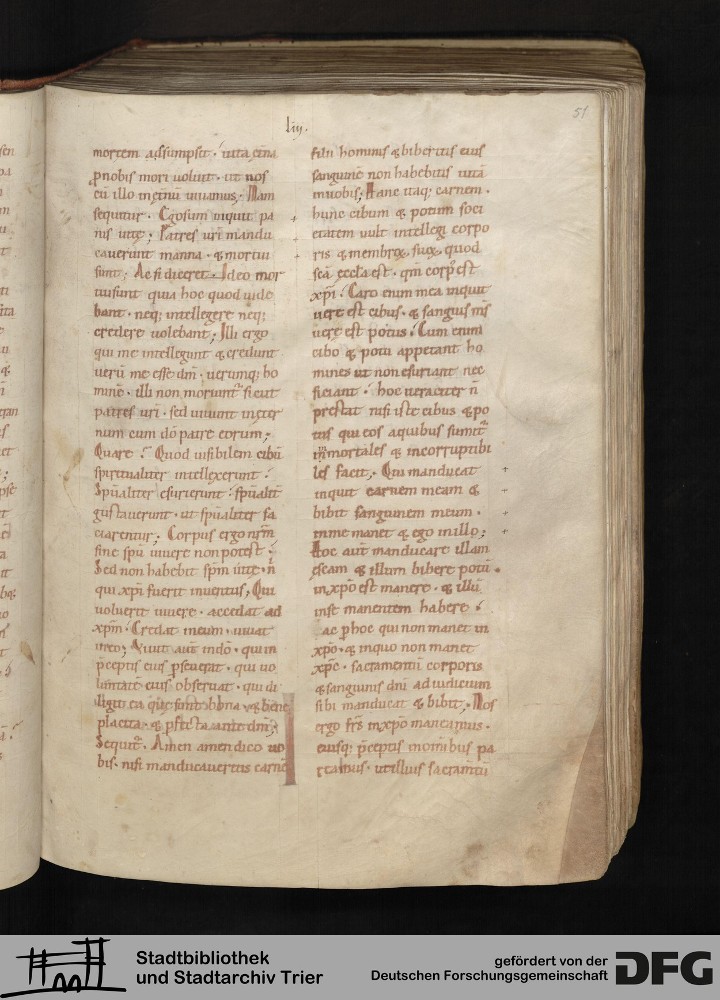 51
liij.
mortem assumpsit · uitā etnā
ꝓnobis mori uoluit · ut nos
cū illo inetnū uiuamus; Nam
sequitur · Egosum inquit pa
nis uitę; Patres uri mandu
cauerunt manna · & mortui
sunt; Ac si diceret · Ideo mor
tuisunt quia hoc quod uide
bant · neq; intellegere neq;
credere uolebant; Illi ergo
qui me intellegunt & credunt
uerū me esse dm̄ · uerumq; ho
minē · illi non moriunt̄ sicut
patres uri · sed uiuunt inęter
num cum dō patre eorum;
Quare? Quod uisibilem cibū
spiritualiter intellexerunt ·
Spūaliter esurierunt · spūalit̄
gustauerunt · ut spūaliter sa
ciarentur; Corpus ergo nr̄m
sine spū uiuere non potest ·
Sed non habebit spm̄ uitę · n̄
qui xpī fuerit inuentus; Qui
uoluerit uiuere · accedat ad
xpm̄ · Credat ineum · uiuat
ineo; Viuit aut̄ indō · qui in
p̄ceptis eius ꝑseuerat · qui uo
luntatē eius obseruat · qui di
ligit ea quę sunt bona & bene
placita · & ꝑfecta ante dm̄;
Sequit̄ · Amen amen dico uo
bis · nisi manducaueritis carnē
filii hominis & biberitis eius
sanguinē non habebitis uitā
inuobis; Hanc itaq; carnem ·
hunc cibum & potum soci
etatem uult intellegi corpo
ris & membrorum suorum, quod
scā ęccła est · qm̄ corp̓ est
xpī · Caro enim mea inquit
uere est cibus · & sanguis m̄s
uere est potus · Cum enim
cibo & potu appetant ho
mines ut non esuriant nec
siciant · hoc ueraciter n̄
prestat nisi iste cibus & po
tus qui eos aquibus sumit̄
immortales & incorruptibi
les facit; Qui manducat
inquit carnem meam &
bibit sanguinem meum ·
inme manet & ego in illo;
Hoc aut̄ manducare illam
escam & illum bibere potū ·
in xpō est manere · & illū
inse manentem habere ·
ac ꝑhoc qui non manet in
xpō · & inquo non manet
xpc · sacramentū corporis
& sanguinis dnī ad iudicium
sibi manducat & bibit; Nos
ergo frs̄ in xpō maneamus ·
eiusq; p̄ceptis moribus pa
reamus · ut illius sacram̄tū
Stadtbibliothek
und Stadtarchiv Trier
gefördert von der
Deutschen Forschungsgemeinschaft
DFG